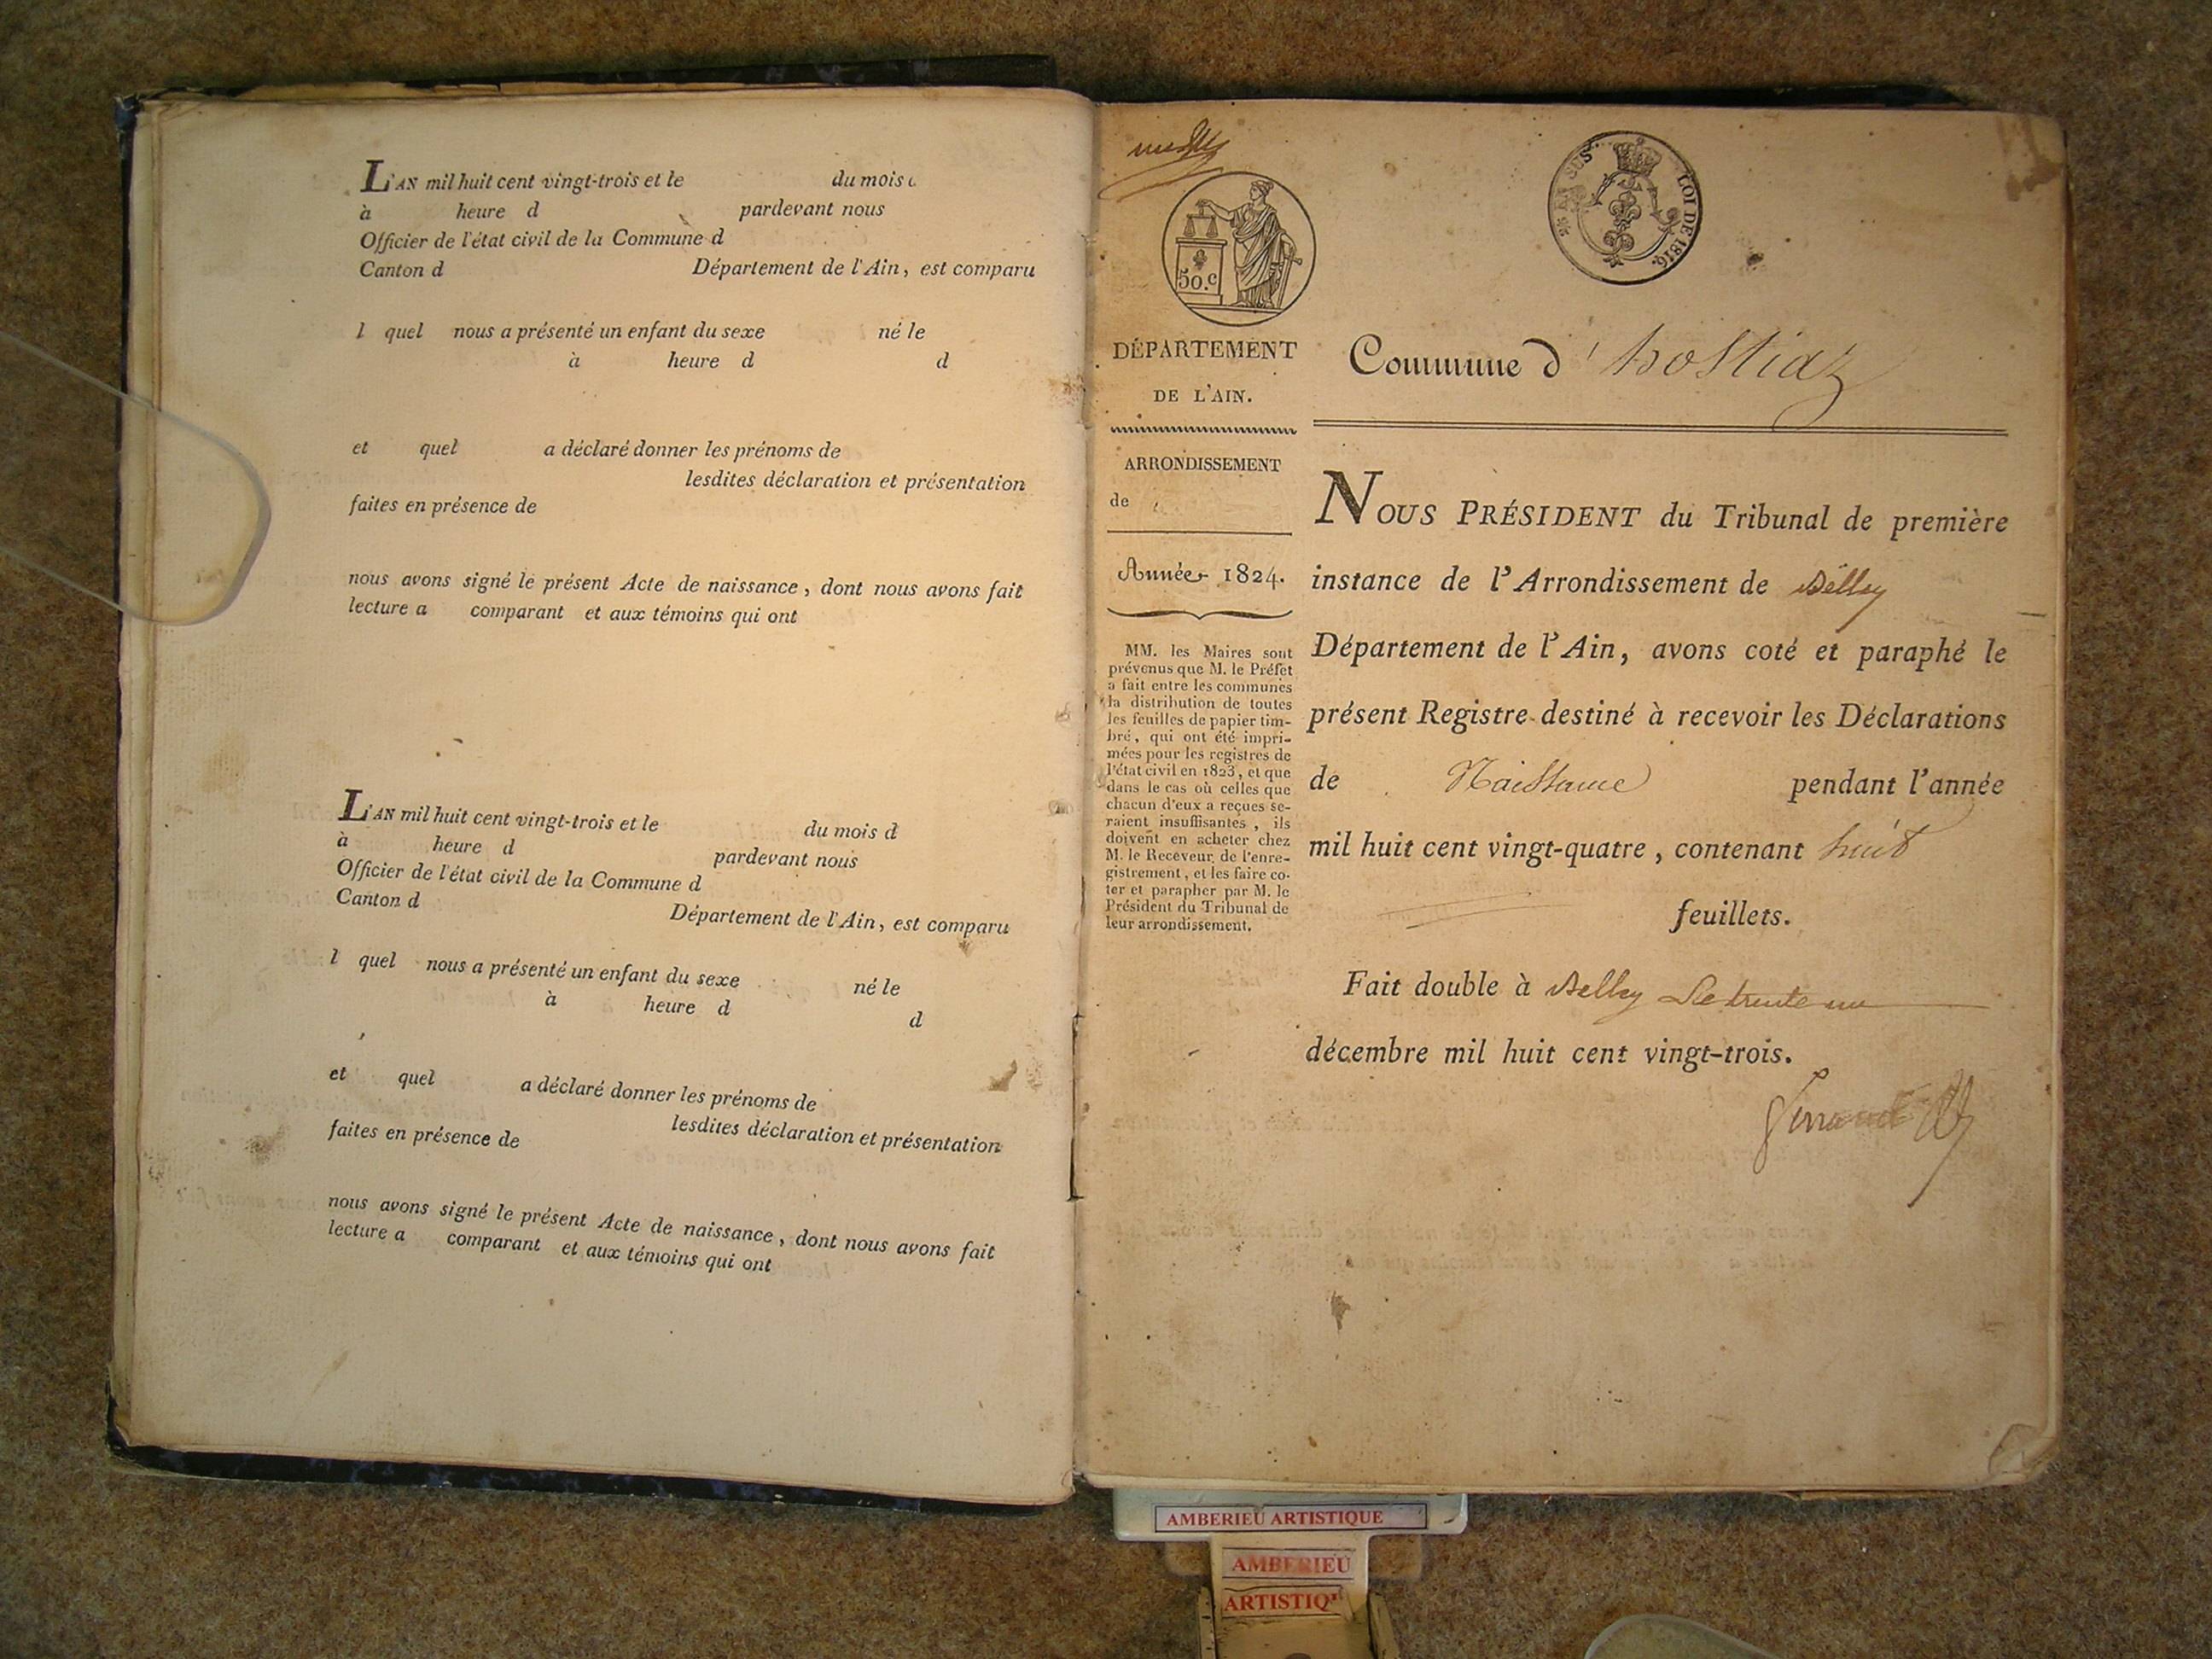 L'AN mil huit cent vingt-trois et le du mois
à heure d pardevant nous
Officier de l'état civil de la Commune d
Canton d Département de l'Ain, est comparu
l quel nous a présenté un enfant du sexe né le
à heure d d
et quel a déclaré donner les prénoms de
lesdites déclaration et présentation
faites en présence de
nous avons signé le présent Acte de naissance, dont nous avons fait
lecture a comparant et aux témoins qui ont
L'AN mil huit cent vingt-trois et le du mois d
à heure d pardevant nous
Officier de l'état civil de la Commune d
Canton d Département de l'Ain, est comparu
l quel nous a présenté un enfant du sexe né le
à heure d d
et quel a déclaré donner les prénoms de
lesdites déclaration et présentation
faites en présence de
nous avons signé le présent Acte de naissance, dont nous avons fait
lecture a comparant et aux témoins qui ont
50.c
EN SUS
LOI DE 1816.
DÉPARTEMENT
DE L'AIN.
ARRONDISSEMENT
de
Année 1824.
MM. les Maires sont
prévenus que M. le Préfet
a fait entre les communes
la distribution de toutes
les feuilles de papier tim-
bré, qui ont été impri-
mées pour les registres de
l'état civil en 1823, et que
dans le cas où celles que
chacun d'eux a reçues se-
raient insuffisantes, ils
doivent en acheter chez
M. le Receveur de l'enre-
gistrement, et les faire co-
ter et parapher par M. le
Président du Tribunal de
leur arrondissement.
Commune d'hostiaz
NOUS PRÉSIDENT du Tribunal de première
instance de l'Arrondissement de Belley
Département de l'Ain, avons coté et paraphé le
présent Registre destiné à recevoir les Déclarations
de Naissance pendant l'année
mil huit cent vingt-quatre, contenant huit
feuillets.
Fait double à Belley Le trente un
décembre mil huit cent vingt-trois.
AMBERIEU ARTISTIQUE
AMBERIEU
ARTISTIQ